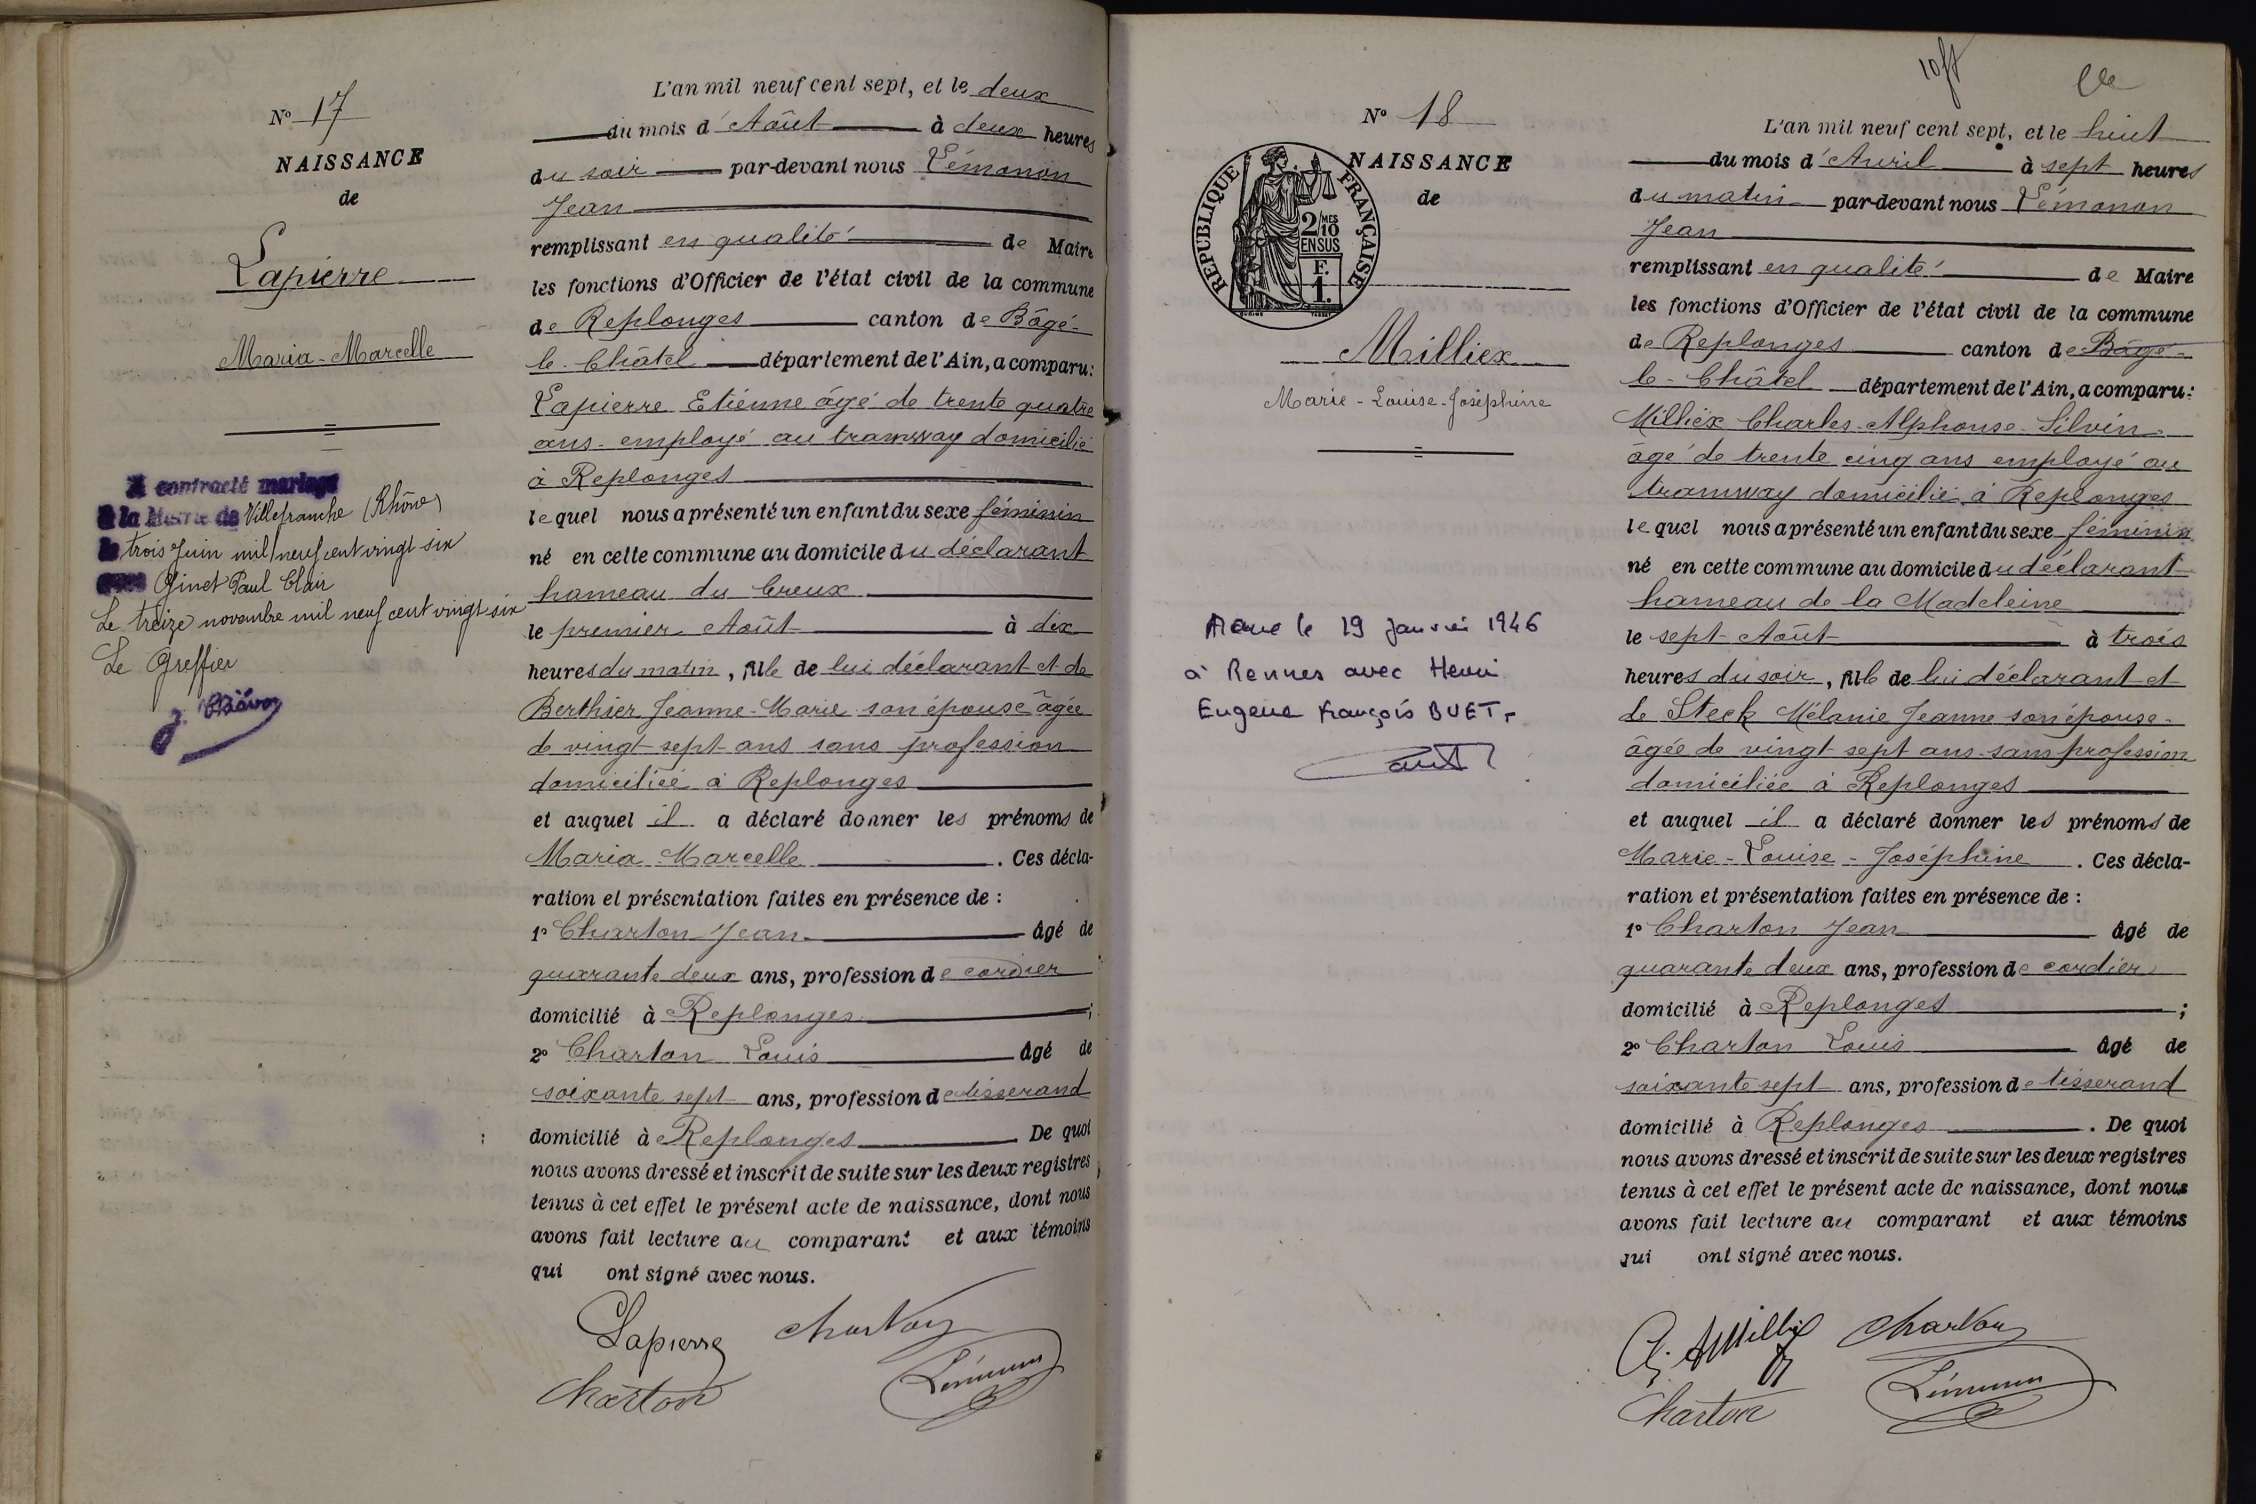 N° 17
NAISSANCE
de
Lapierre
Maria-Marcelle
A contracté mariage
à la Mairie de Villefranche (Rhône)
le trois Juin mil neuf cent vingt six
avec Ginet Paul Clair
Le treize novembre mil neuf cent vingt six
Le Greffier
L'an mil neuf cent sept, et le deux
du mois d'Août à deux heures
du soir par-devant nous Lémonon
Jean
remplissant en qualité de Maire
les fonctions d'Officier de l'état civil de la commune
de Replonges canton de Bâgé-
le-Châtel département de l'Ain, a comparu:
Lapierre Etienne âgé de trente quatre
ans employé au tramway domicilié
à Replonges
lequel nous a présenté un enfant du sexe féminin
né en cette commune au domicile du déclarant
hameau du Creux
le premier Août à dix
heures du matin, fille de lui déclarant et de
Berthier Jeanne-Marie son épouse âgée
de vingt-sept ans sans profession
domiciliée à Replonges
et auquel il a déclaré donner les prénoms de
Maria Marcelle . Ces décla-
ration et présentation faites en présence de :
1° Charton Jean âgé de
quarante deux ans, profession de cordier
domicilié à Replonges ;
2° Charton Louis âgé de
soixante sept ans, profession de tisserand
domicilié à Replonges . De quoi
nous avons dressé et inscrit de suite sur les deux registres
tenus à cet effet le présent acte de naissance, dont nous
avons fait lecture au comparant et aux témoins
qui ont signé avec nous.
Lapierre Charton
Charton Lémonon
N° 18
NAISSANCE
de
RÉPUBLIQUE FRANÇAISE
2/10 MES
EN SUS
F.
1.
Milliex
Marie-Louise-Joséphine
Mariée le 19 janvier 1946
à Rennes avec Henri
Eugène François BUET.
L'an mil neuf cent sept, et le huit
du mois d'Avril à sept heures
du matin par-devant nous Lémonon
Jean
remplissant en qualité de Maire
les fonctions d'Officier de l'état civil de la commune
de Replonges canton de Bâgé-
le-Châtel département de l'Ain, a comparu:
Milliex Charles-Alphonse-Silvin
âgé de trente cinq ans employé au
tramway domicilié à Replonges
lequel nous a présenté un enfant du sexe féminin
né en cette commune au domicile du déclarant
hameau de la Madeleine
le sept Août à trois
heures du soir, fille de lui déclarant et
de Steck Mélanie Jeanne son épouse
âgée de vingt sept ans sans profession
domiciliée à Replonges
et auquel il a déclaré donner les prénoms de
Marie-Louise-Joséphine . Ces décla-
ration et présentation faites en présence de :
1° Charton Jean âgé de
quarante deux ans, profession de cordier
domicilié à Replonges ;
2° Charton Louis âgé de
soixante sept ans, profession de tisserand
domicilié à Replonges . De quoi
nous avons dressé et inscrit de suite sur les deux registres
tenus à cet effet le présent acte de naissance, dont nous
avons fait lecture au comparant et aux témoins
qui ont signé avec nous.
Charton
Charton Lémonon